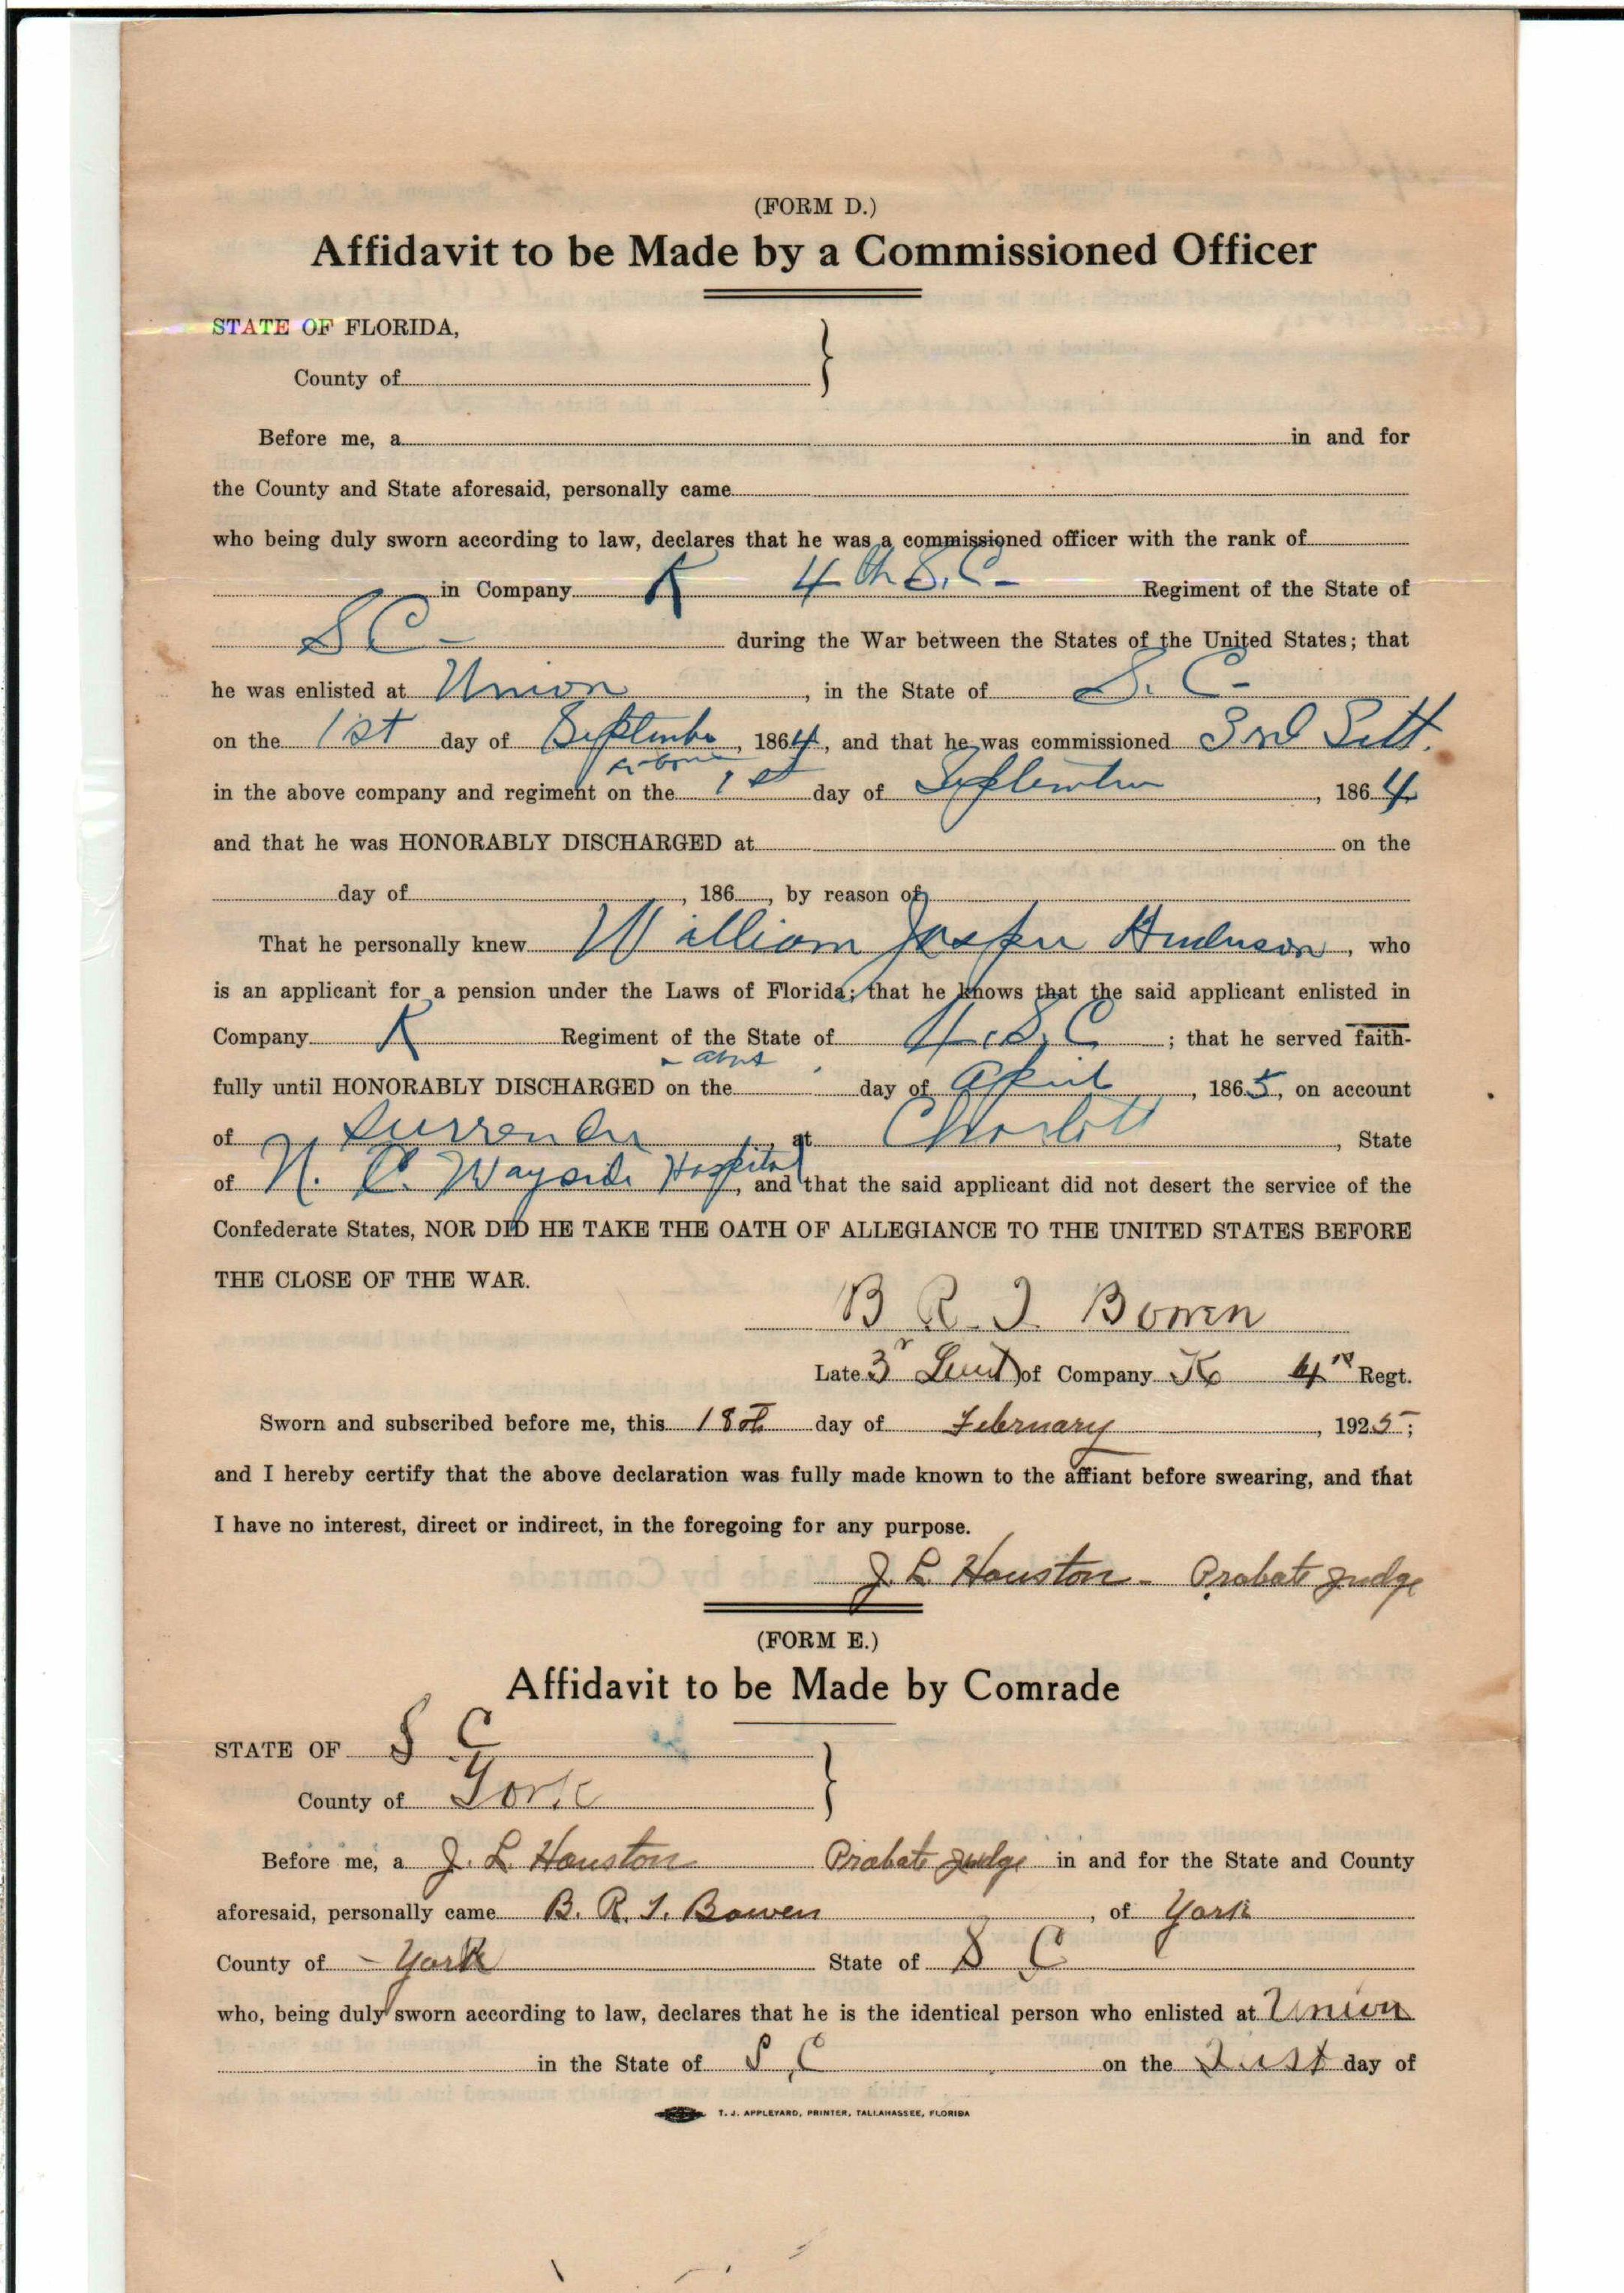 (FORM D.)
Affidavit to be Made by a Commissioned Officer
STATE OF FLORIDA,
County of
Before me, a in and for
the County and State aforesaid, personally came
who being duly sworn according to law, declares that he was a commissioned officer with the rank of
in Company K 4th S.C. Regiment of the State of
S C during the War between the States of the United States; that
he was enlisted at Union, in the State of S. C.
on the 1st day of September, 1864, and that he was commissioned 3rd
in the above company and regiment on the 1st day of September, 1864
and that he was HONORABLY DISCHARGED at on the
day of, 186, by reason of
That he personally knew William Jasper, who
is an applicant for a pension under the Laws of Florida; that he knows that the said applicant enlisted in
Company K Regiment of the State of 4, S. C; that he served faith-
about
fully until HONORABLY DISCHARGED on the day of April, 1865, on account
of Surrender, at Charlott, State
of N. C. Wayside Hospital, and that the said applicant did not desert the service of the
Confederate States, NOR DID HE TAKE THE OATH OF ALLEGIANCE TO THE UNITED STATES BEFORE
THE CLOSE OF THE WAR.
B R. J. Bowen
Late 3r Lieut of Company K 4th Regt.
Sworn and subscribed before me, this 18th day of February, 1925;
and I hereby certify that the above declaration was fully made known to the affiant before swearing, and that
I have no interest, direct or indirect, in the foregoing for any purpose.
J. L. Houston - Probate Judge
(FORM E.)
Affidavit to be Made by Comrade
STATE OF S C
County of York
Before me, a J. L. Houston Probate Judge in and for the State and County
aforesaid, personally came B. R. J. Bowen, of York
County of - York State of S C
who, being duly sworn according to law, declares that he is the identical person who enlisted at Union
in the State of S. C on the First day of
T. J. APPLEYARD, PRINTER, TALLAHASSEE, FLORIDA